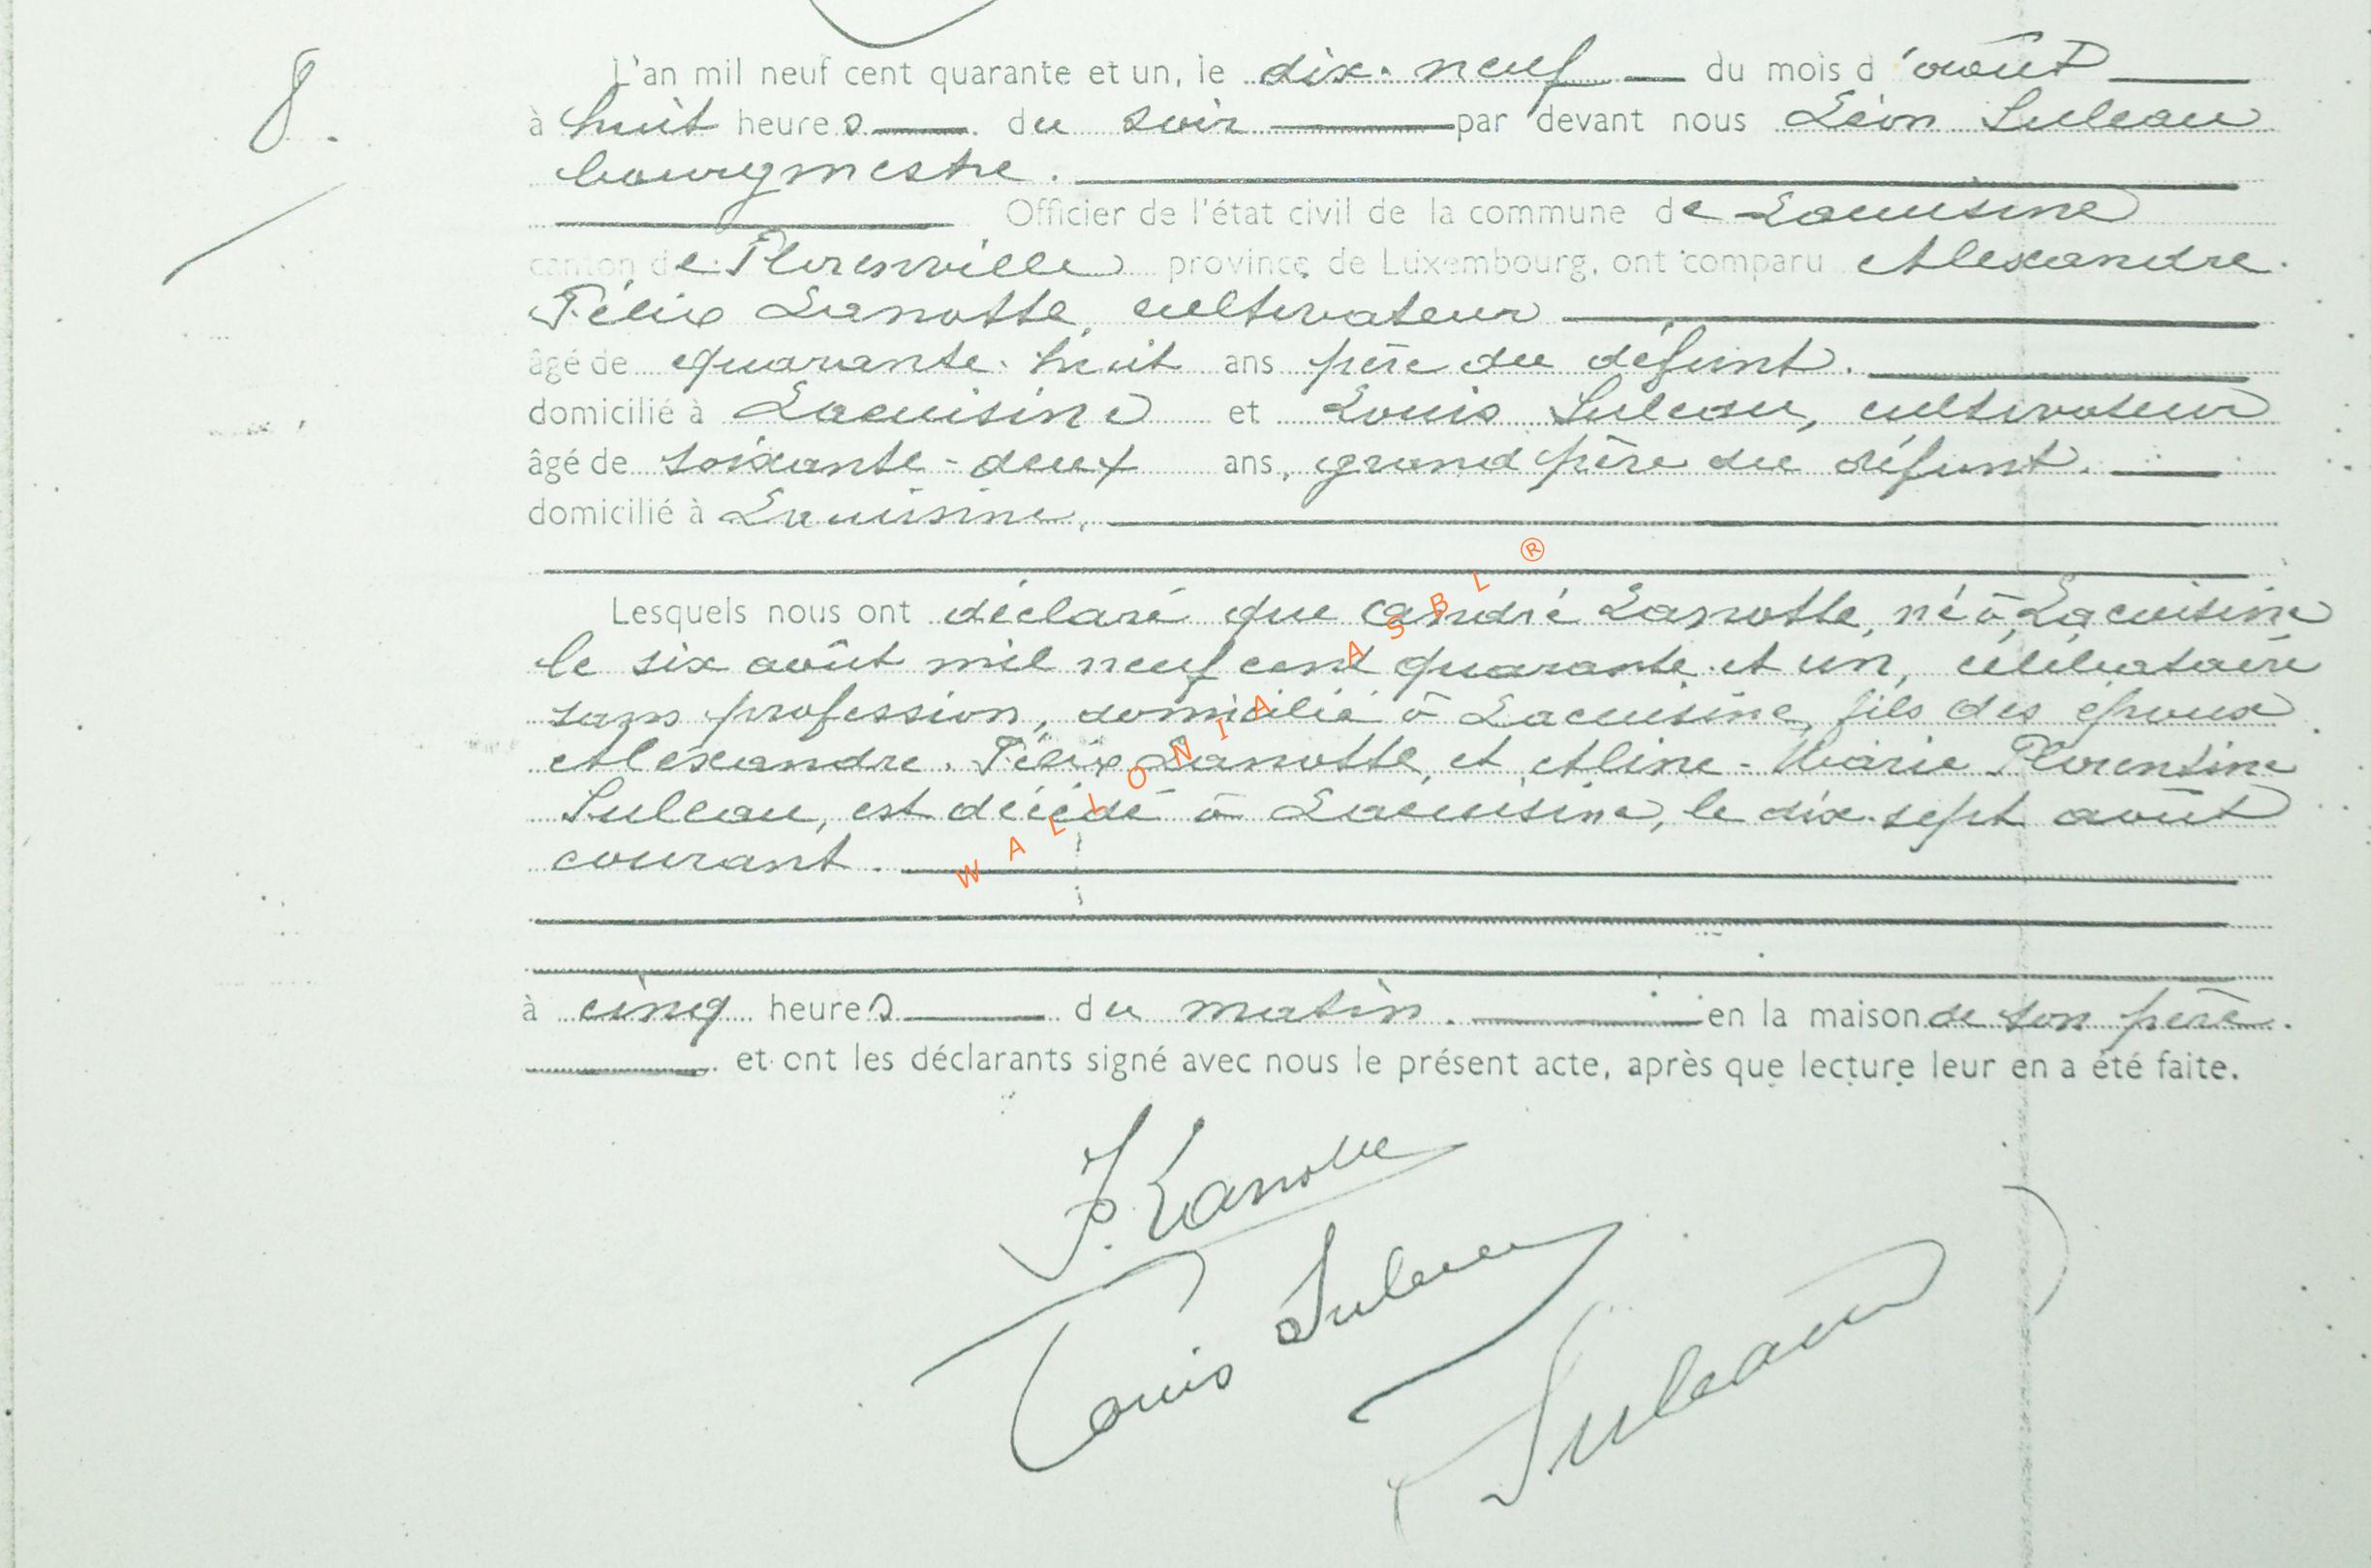 8.
L'an mil neuf cent quarante et un, le dix-neuf du mois d'août
à huit heures du soir par devant nous Léon Suleau
bourgmestre.
Officier de l'état civil de la commune de Lacuisine
canton de Florenville province de Luxembourg, ont comparu Alexandre-
Félix Lanotte, cultivateur
âgé de quarante-huit ans père du défunt.
domicilié à Lacuisine et Louis Suleau, cultivateur
âgé de soixante-deux ans, grand père du défunt.
domicilié à Lacuisine,
Lesquels nous ont déclaré que André Lanotte, né à Lacuisine
le six août mil neuf cent quarante et un, célibataire
sans profession, domicilié à Lacuisine, fils des époux
Alexandre-Félix Lanotte, et Aline-Marie Florentine
Suleau, est décédé à Lacuisine, le dix-sept août
courant.
à cinq heures du matin. en la maison de son père.
et ont les déclarants signé avec nous le présent acte, après que lecture leur en a été faite.
F. Lanotte
Louis Suleau
Suleau
WALLONIA ASBL ®